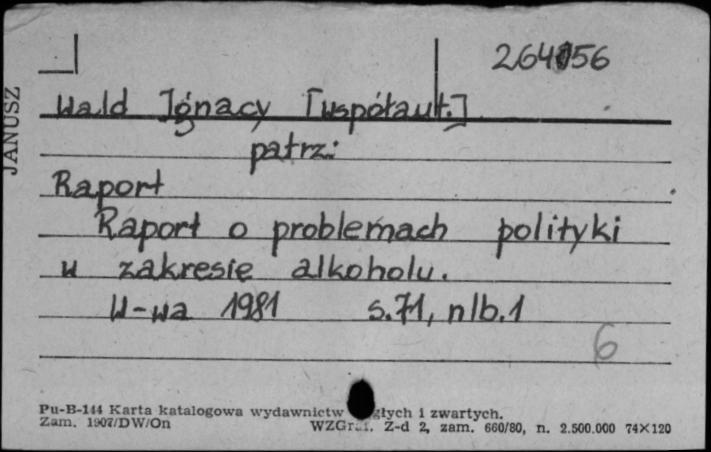 264156
Wald Ignacy [współaut.]
JANUSZ
patrz:
Raport
Raport o problemach polityki
w zakresie alkoholu.
W-wa 1981 s.71, nlb.1
6
Pu-B-144 Karta katalogowa wydawnictw głych i zwartych.
Zam. 1907/DW/On WZGraf. Z-d 2, zam. 660/80, n. 2.500.000 74×120